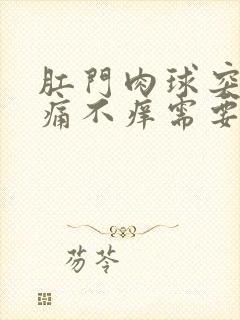 肛門肉球突
痛不痒需要
芴苓